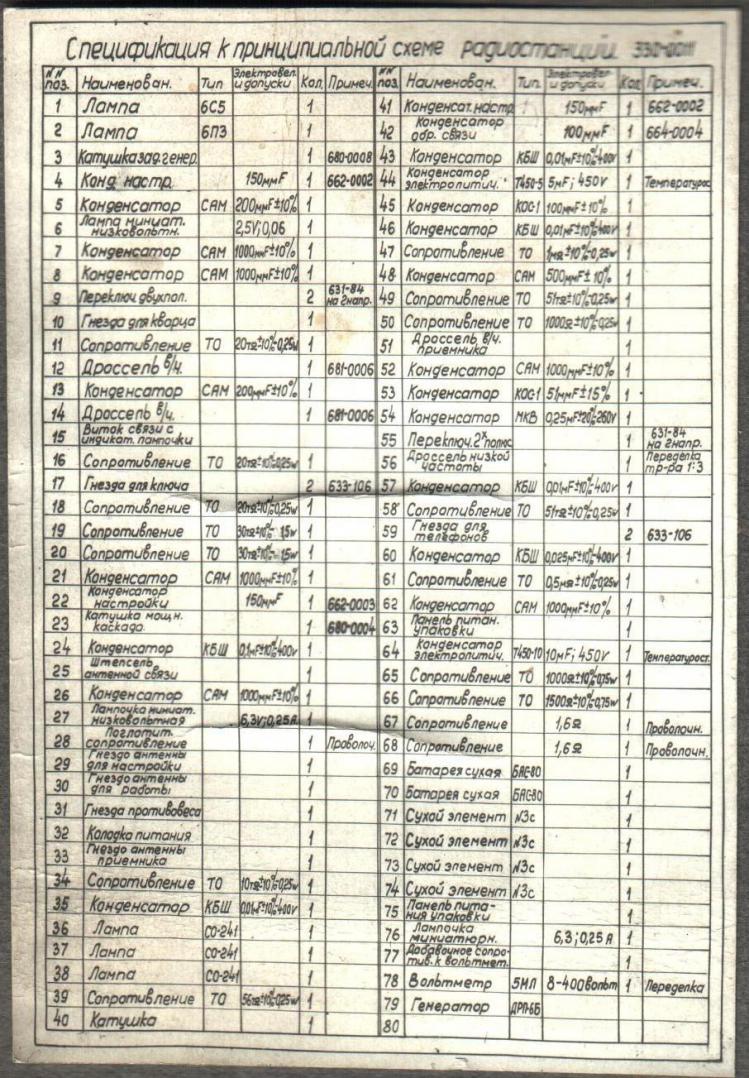 Спецификация к принципиальной схеме радиостанции 330-0011
№№ поз. Наименован. Тип Электровел. и допуски Кол. Примеч.
1 Лампа 6С5 1
2 Лампа 6П3 1
3 Катушка зад. генер. 1 680-0008
4 Конд. настр. 150ммF 1 662-0002
5 Конденсатор САМ 200ммF±10% 1
6 Лампа миниат. низковольтн. 2,5V; 0,06 1
7 Конденсатор САМ 1000ммF±10% 1
8 Конденсатор САМ 1000ммF±10% 1
9 Переключ. двухпол. 2 631-84 на 2 напр.
10 Гнезда для кварца 1
11 Сопротивление ТО 20тΩ±10%-0,25w 1
12 Дроссель в/ч. 1 681-0006
13 Конденсатор САМ 200ммF±10% 1
14 Дроссель в/ч. 1 681-0006
15 Виток связи с индикат. лампочки
16 Сопротивление ТО 20тΩ±10%-0,25w 1
17 Гнезда для ключа 2 633-106
18 Сопротивление ТО 20тΩ±10%-0,25w 1
19 Сопротивление ТО 30тΩ±10%- 15w 1
20 Сопротивление ТО 30тΩ±10%- 15w 1
21 Конденсатор САМ 1000ммF±10% 1
22 Конденсатор настройки 150ммF 1 662-0003
23 Катушка мощн. каскада. 1 680-0004
24 Конденсатор КБШ 0,1мF±10%-400v 1
25 Штепсель антенной связи 1
26 Конденсатор САМ 1000ммF±10% 1
27 Лампочка миниат. низковольтная 6,3V; 0,25А 1
28 Поглотит. сопротивление 1 Проволоч.
29 Гнездо антенны для настройки 1
30 Гнездо антенны для работы 1
31 Гнезда противовеса 1
32 Колодка питания 1
33 Гнездо антенны приемника 1
34 Сопротивление ТО 10тΩ±10%-0,25w 1
35 Конденсатор КБШ 0,01мF±10%-400v 1
36 Лампа СО-241 1
37 Лампа СО-241 1
38 Лампа СО-241 1
39 Сопротивление ТО 56тΩ±10%-0,25w 1
40 Катушка 1
№№ поз. Наименован. Тип. Электровел. и допуски Кол Примеч.
41 Конденсат. настр. 150ммF 1 662-0002
42 Конденсатор обр. связи 100ммF 1 664-0004
43 Конденсатор КБШ 0,01мF±10%-400v 1
44 Конденсатор электролитич. Т450-5 5мF; 450V 1 Температурос
45 Конденсатор КОС-1 100ммF±10% 1
46 Конденсатор КБШ 0,01мF±10%-400v 1
47 Сопротивление ТО 1мΩ±10%-0,25w 1
48 Конденсатор САМ 500ммF±10% 1
49 Сопротивление ТО 51тΩ±10%-0,25w 1
50 Сопротивление ТО 1000Ω±10%-0,25w 1
51 Дроссель в/ч. приемника 1
52 Конденсатор САМ 1000ммF±10% 1
53 Конденсатор КОС-1 51ммF±15% 1
54 Конденсатор МКВ 0,25мF±20%-260V 1
55 Переключ. 2х полюс 1 631-84 на 2 напр.
56 Дроссель низкой частоты 1 Переделка тр-ра 1:3
57 Конденсатор КБШ 0,01мF±10%-400v 1
58 Сопротивление ТО 51тΩ±10%-0,25w 1
59 Гнезда для телефонов 2 633-106
60 Конденсатор КБШ 0,025мF±10%-400v 1
61 Сопротивление ТО 0,5мΩ±10%-0,25w 1
62 Конденсатор САМ 1000ммF±10% 1
63 Панель питан. упаковки 1
64 Конденсатор электролитич. Т450-10 10мF; 450V 1 Температурост.
65 Сопротивление ТО 1000Ω±10%-0,75w 1
66 Сопротивление ТО 1500Ω±10%-0,75w 1
67 Сопротивление 1,6Ω 1 Проволочн.
68 Сопротивление 1,6Ω 1 Проволочн.
69 Батарея сухая БАС-80 1
70 Батарея сухая БАС-80 1
71 Сухой элемент №3с 1
72 Сухой элемент №3с 1
73 Сухой элемент №3с 1
74 Сухой элемент №3с 1
75 Панель питания упаковки 1
76 Лампочка миниатюрн. 6,3; 0,25 А 1
77 Добавочное сопротив. к вольтмет. 1
78 Вольтметр 5МЛ 8-400 вольт 1 Переделка
79 Генератор ДРП-6Б 1
80